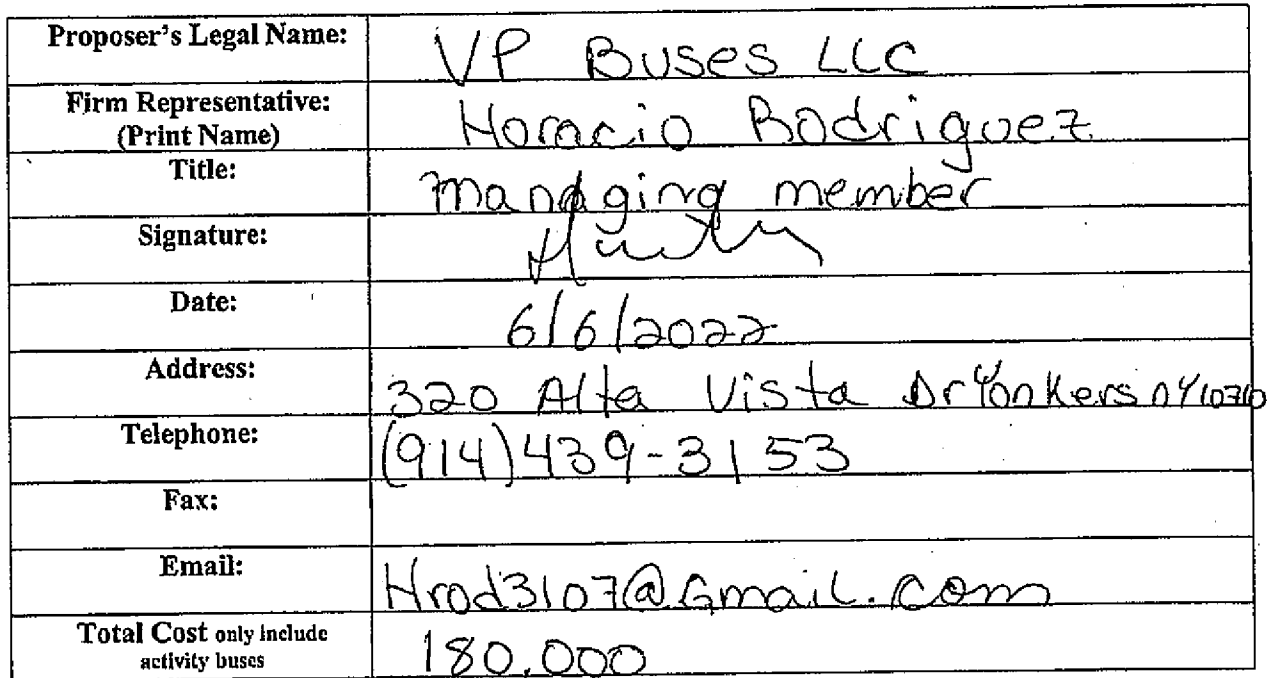 Proposer's Legal Name: VP Buses LLC
Firm Representative: Horacio Rodriguez
(Print Name)
Title: managing member
Signature:
Date: 6/6/2022
Address: 320 Alta Vista Dr Yonkers NY 10710
Telephone: (914)439-3153
Fax:
Email: Hrod3107@Gmail.com
Total Cost only include 180,000
activity buses